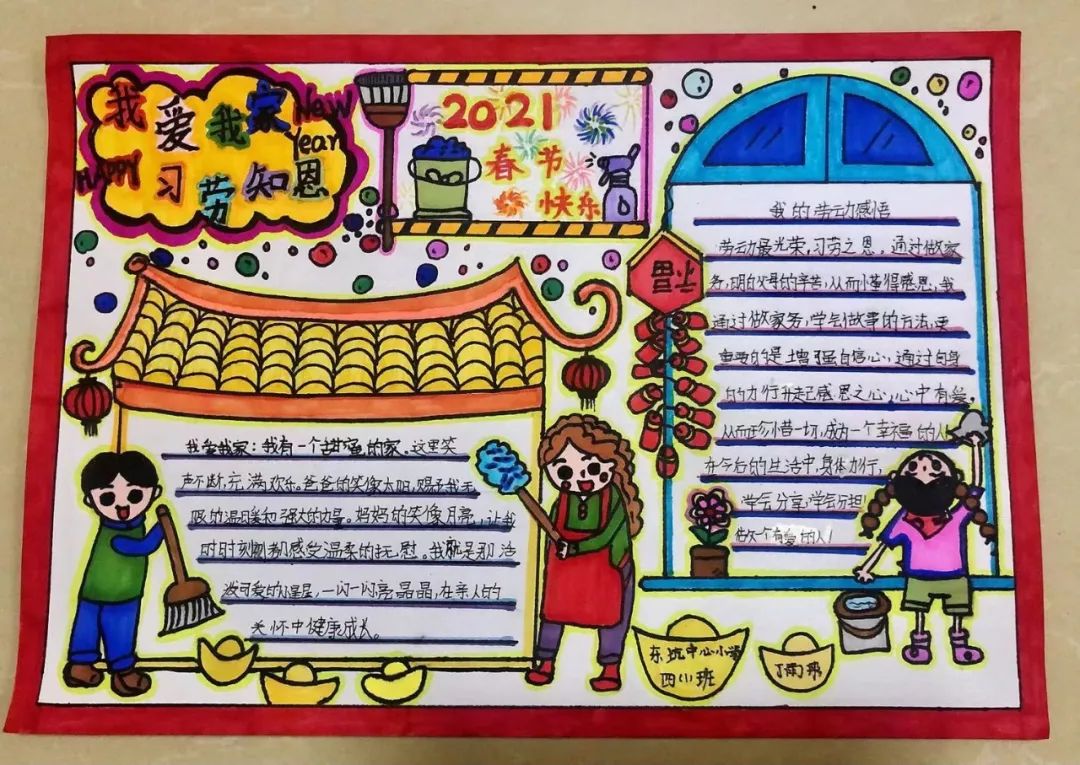 我爱我家 New
Year
HAPPY 习劳知恩
2021
春节
快乐
福
我爱我家：我有一个甜蜜的家。这里笑
声不断，充满欢乐。爸爸的笑像太阳，赐予我无
限的温暖和强大的力量。妈妈的笑像月亮，让我
时时刻刻都感受温柔的抚慰。我就是那活
泼可爱的小星星，一闪一闪亮晶晶，在亲人的
关怀中健康成长。
我的劳动感悟
劳动最光荣，习劳之恩，通过做家
务，明白父母的辛苦，从而懂得感恩，我
通过做家务，学会做事的方法，更
重要的是增强自信心，通过自身
的力行升起感恩之心，心中有爱，
从而珍惜一切，成为一个幸福的人
在今后的生活中，身体力行，
学会分享，学会分担
做一个有爱的人！
东坑中心小学
四(1)班
丁雨